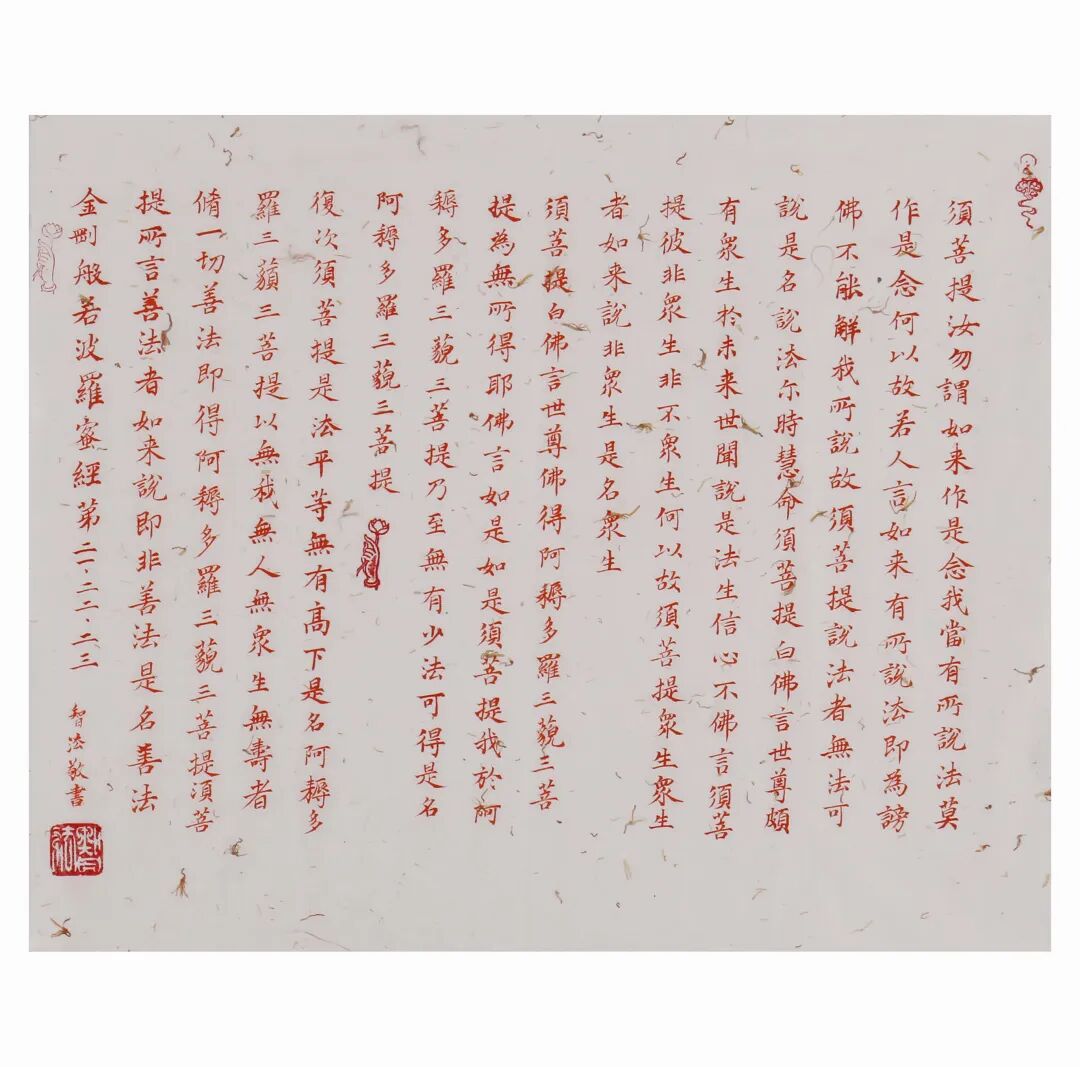 須菩提汝勿謂如来作是念我當有所說法莫
作是念何以故若人言如来有所說法即為謗
佛不能解我所說故須菩提說法者無法可
說是名說法尔時慧命須菩提白佛言世尊頗
有眾生於未来世聞說是法生信心不佛言須菩
提彼非眾生非不眾生何以故須菩提眾生眾生
者如来說非眾生是名眾生
須菩提白佛言世尊佛得阿耨多羅三藐三菩
提為無所得耶佛言如是如是須菩提我於阿
耨多羅三藐三菩提乃至無有少法可得是名
阿耨多羅三藐三菩提
復次須菩提是法平等無有高下是名阿耨多
羅三藐三菩提以無我無人無眾生無壽者
脩一切善法即得阿耨多羅三藐三菩提須菩
提所言善法者如来說即非善法是名善法
金剛般若波羅蜜經第二一、二二、二三
智法敬書